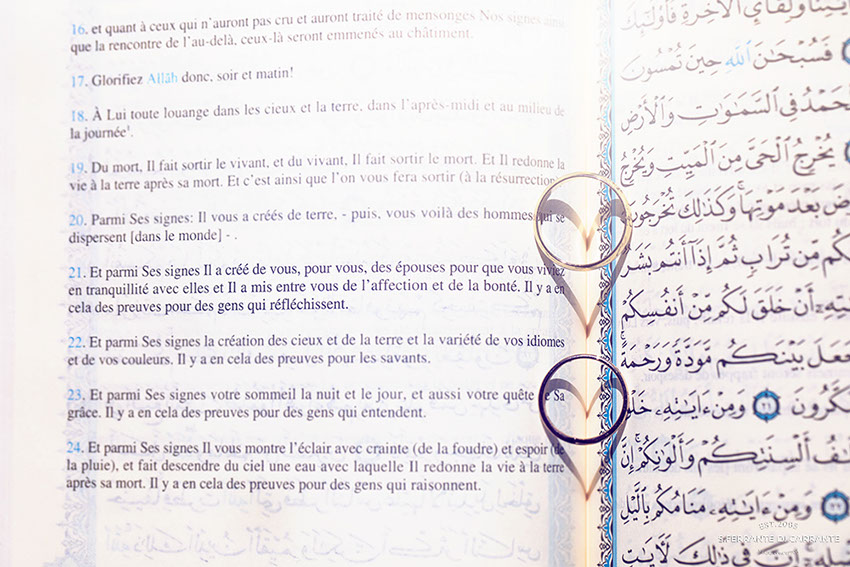 16. et quant à ceux qui n'auront pas cru et auront traité de mensonges Nos signes ainsi
que la rencontre de l'au-delà, ceux-là seront emmenés au châtiment.
17. Glorifiez Allāh donc, soir et matin!
18. À Lui toute louange dans les cieux et la terre, dans l'après-midi et au milieu de
la journée¹.
19. Du mort, Il fait sortir le vivant, et du vivant, Il fait sortir le mort. Et Il redonne la
vie à la terre après sa mort. Et c'est ainsi que l'on vous fera sortir (à la résurrection)
20. Parmi Ses signes: Il vous a créés de terre, - puis, vous voilà des hommes qui se
dispersent [dans le monde] - .
21. Et parmi Ses signes Il a créé de vous, pour vous, des épouses pour que vous viviez
en tranquillité avec elles et Il a mis entre vous de l'affection et de la bonté. Il y a en
cela des preuves pour des gens qui réfléchissent.
22. Et parmi Ses signes la création des cieux et de la terre et la variété de vos idiomes
et de vos couleurs. Il y a en cela des preuves pour les savants.
23. Et parmi Ses signes votre sommeil la nuit et le jour, et aussi votre quête de Sa
grâce. Il y a en cela des preuves pour des gens qui entendent.
24. Et parmi Ses signes Il vous montre l'éclair avec crainte (de la foudre) et espoir (de
la pluie), et fait descendre du ciel une eau avec laquelle Il redonne la vie à la terre
après sa mort. Il y a en cela des preuves pour des gens qui raisonnent.
وَلِقَآىِٕ ٱلْـَٔاخِرَةِ فَأُو۟لَـٰٓئِكَ
فَسُبْحَـٰنَ ٱللَّهِ حِينَ تُمْسُونَ
ٱلْحَمْدُ فِى ٱلسَّمَـٰوَٰتِ وَٱلْأَرْضِ
يُخْرِجُ ٱلْحَىَّ مِنَ ٱلْمَيِّتِ وَيُخْرِجُ
بَعْدَ مَوْتِهَا ۚ وَكَذَٰلِكَ تُخْرَجُونَ
مِّن تُرَابٍ ثُمَّ إِذَآ أَنتُم بَشَرٌ
أَنْ خَلَقَ لَكُم مِّنْ أَنفُسِكُمْ
بَيْنَكُم مَّوَدَّةً وَرَحْمَةً ۚ
٢١ وَمِنْ ءَايَـٰتِهِۦ خَلْقُ
أَلْسِنَتِكُمْ وَأَلْوَٰنِكُمْ ۚ إِنَّ
٢٢ وَمِنْ ءَايَـٰتِهِۦ مَنَامُكُم بِٱلَّيْلِ
إِنَّ فِى ذَٰلِكَ لَـَٔايَـٰتٍ
EST. 2005
S.FERRANTE DI CARRANTE